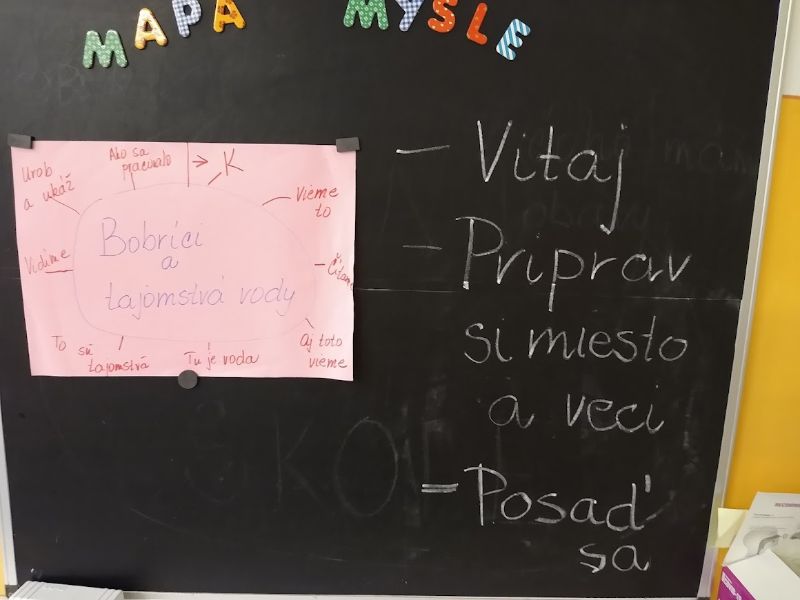 MAPA MYSLE
Urob
a ukáž
Ako sa
pracovalo
→ K
Vieme
to
Čítame
Aj toto
vieme
Tu je voda
To
sú
tajomstvá
Vidíme
Bobríci
a
tajomstvá vody
– Vitaj
– Priprav
si miesto
a veci
= Posaď
sa